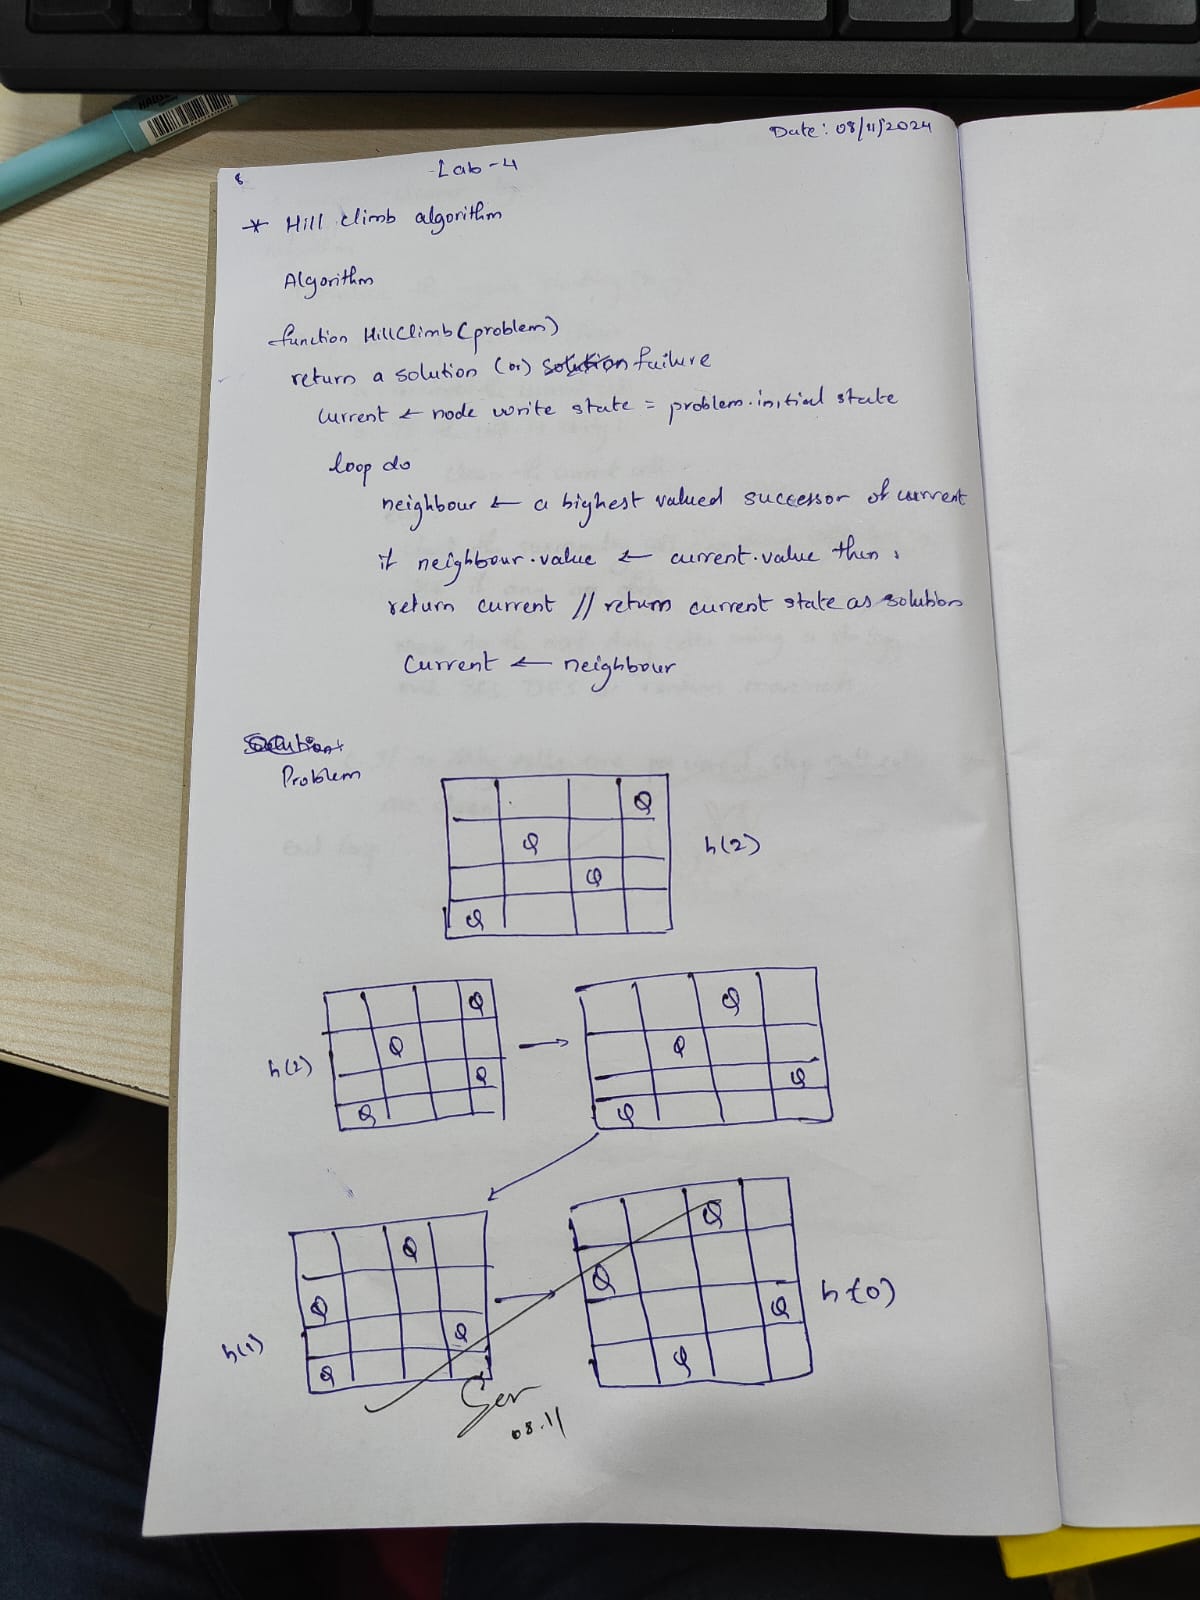 Date: 08/11/2024
8
Lab-4
* Hill climb algorithm
Algorithm
function HillClimb(problem)
return a solution (or) solution failure
current ← node write state = problem.initial state
loop do
neighbour ← a highest valued successor of current
if neighbour.value ← current.value then
return current // return current state as solution
current ← neighbour
Solution
Problem
Q
Q
h(2)
Q
Q
Q
Q
Q
Q
h(2)
Q
Q
Q
Q
Q
Q
Q
Q
h(1)
Q
Q
Q
Q
Q
h(0)
Q
08.11